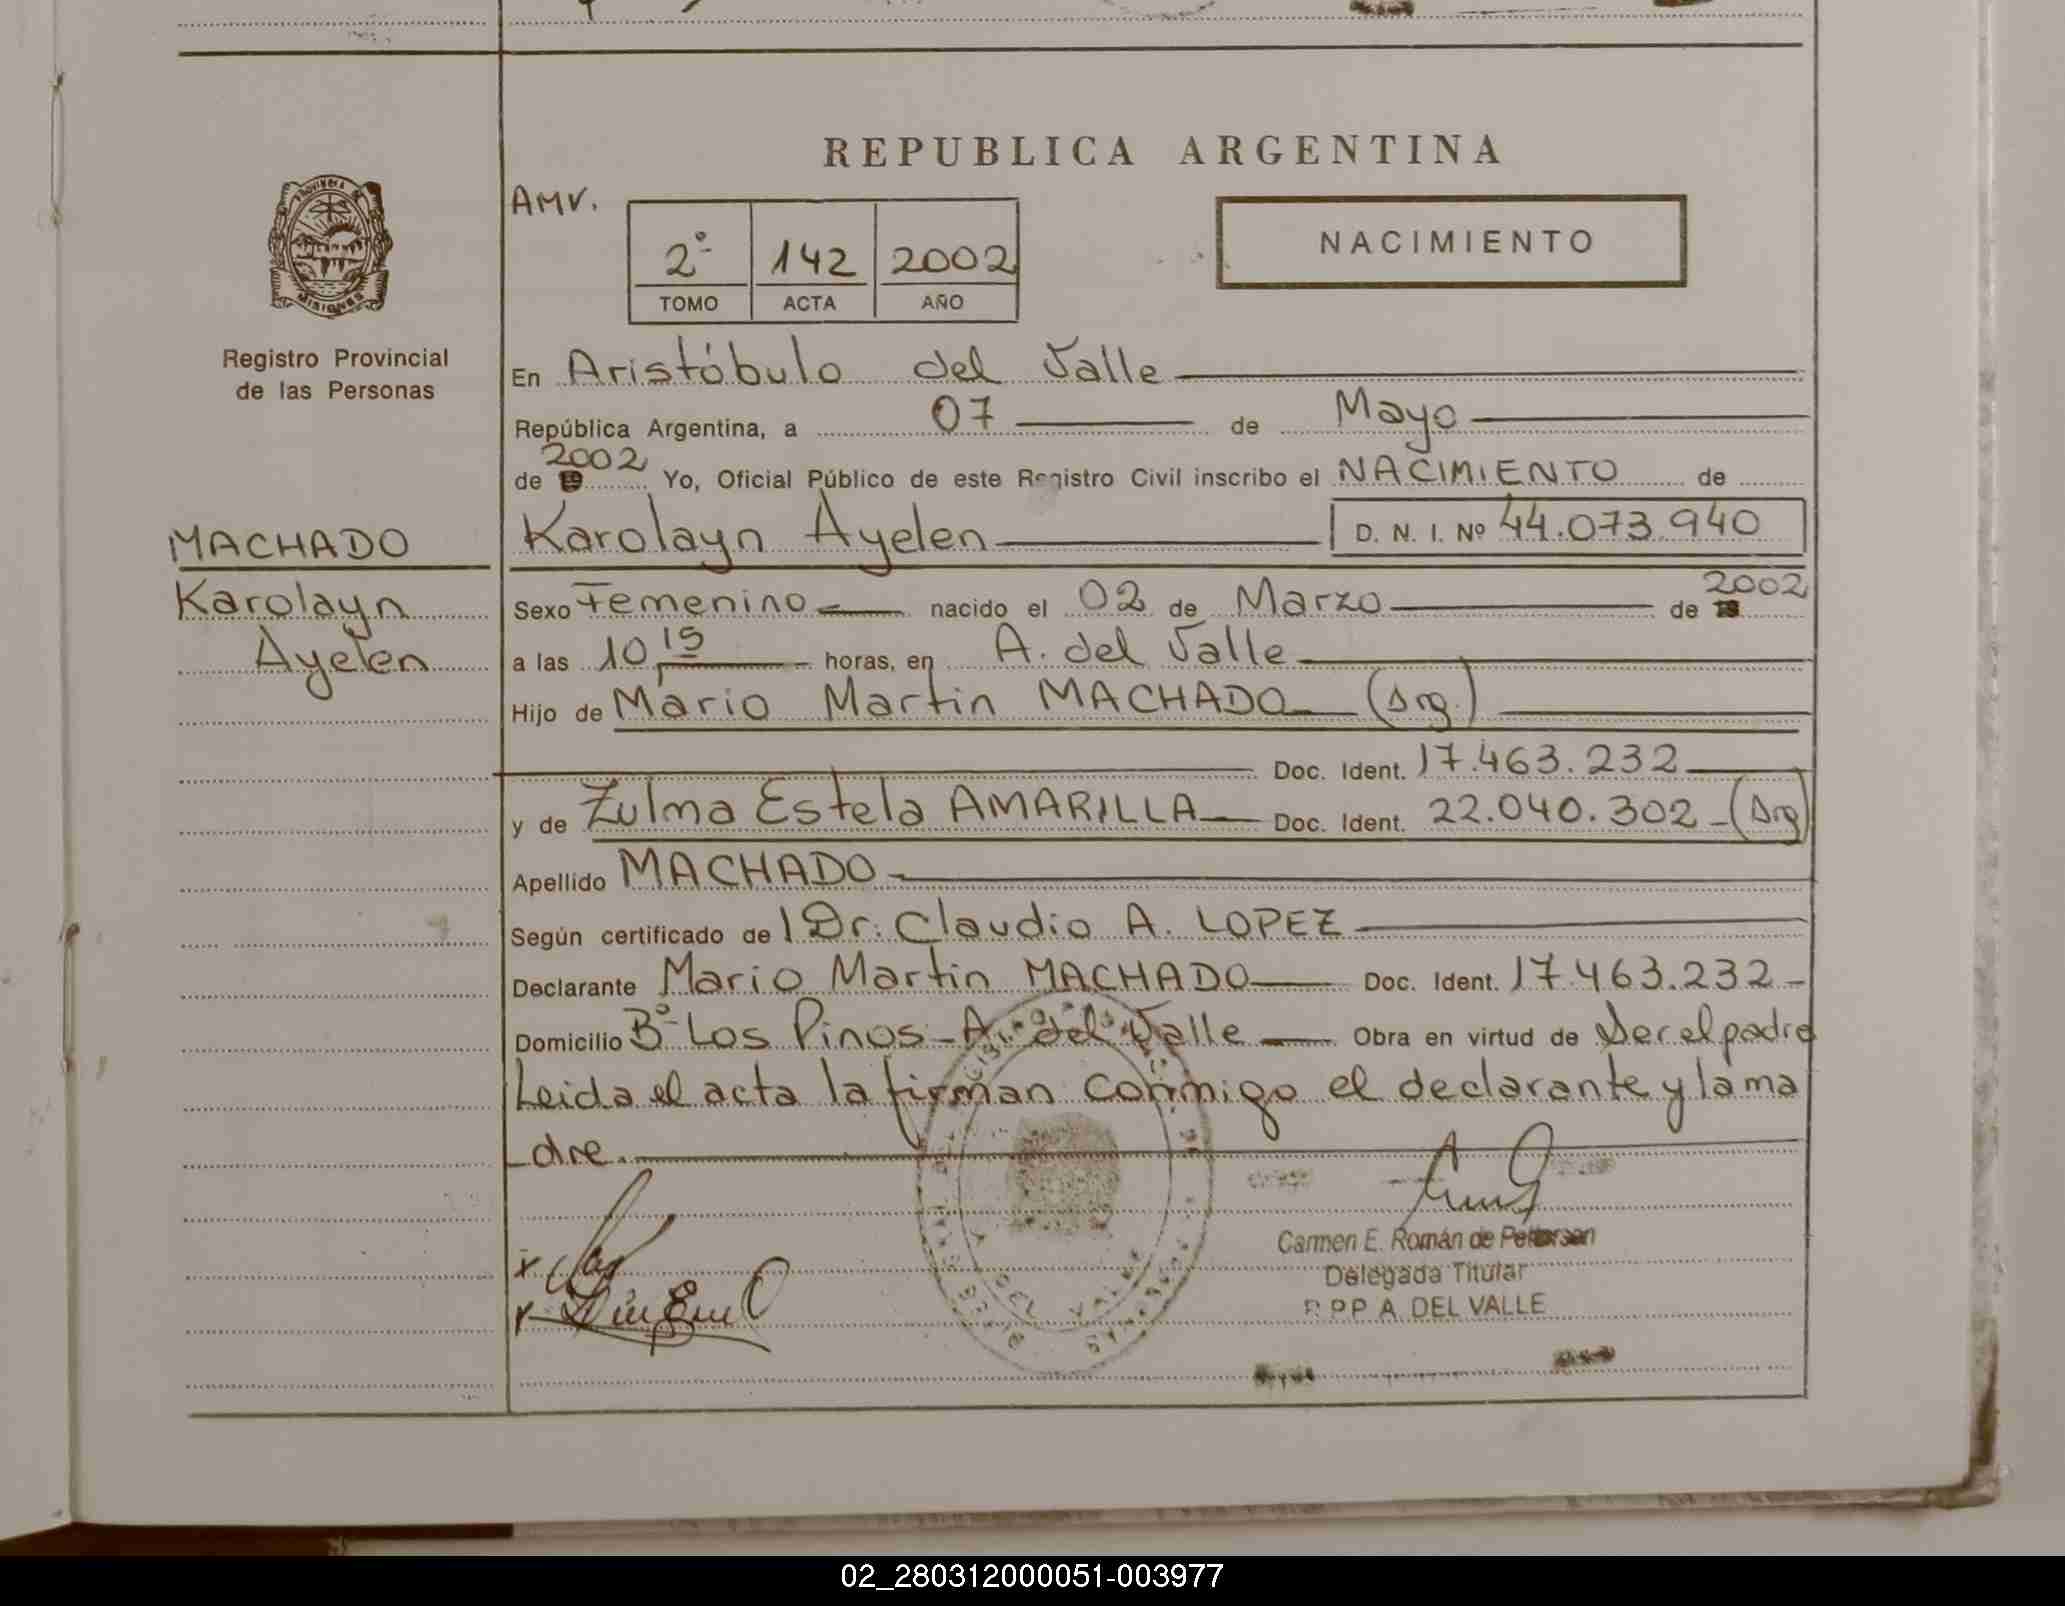 REPUBLICA ARGENTINA
AMV.
2º 142 2002
TOMO ACTA AÑO
NACIMIENTO
PROVINCIA DE
MISIONES
Registro Provincial
de las Personas
En Aristóbulo del Valle
República Argentina, a 07 de Mayo
de 19 2002 Yo, Oficial Público de este Registro Civil inscribo el NACIMIENTO de
MACHADO
Karolayn
Ayelen
Karolayn Ayelen D. N. I. Nº 44.073.940
Sexo Femenino nacido el 02 de Marzo de 19 2002
a las 10,15 horas, en A. del Valle
Hijo de Mario Martin MACHADO (Arg.)
Doc. Ident. 17.463.232
y de Zulma Estela AMARILLA Doc. Ident. 22.040.302 (Arg)
Apellido MACHADO
Según certificado de l Dr. Claudio A. LOPEZ
Declarante Mario Martin MACHADO Doc. Ident. 17.463.232
Domicilio Bº Los Pinos - A. del Valle Obra en virtud de Ser el padre
Leida el acta la firman conmigo el declarante y la ma
dre.
Carmen E. Román de Petterson
Delegada Titular
R.P.P. A. DEL VALLE
A. DEL VALLE
02_280312000051-003977